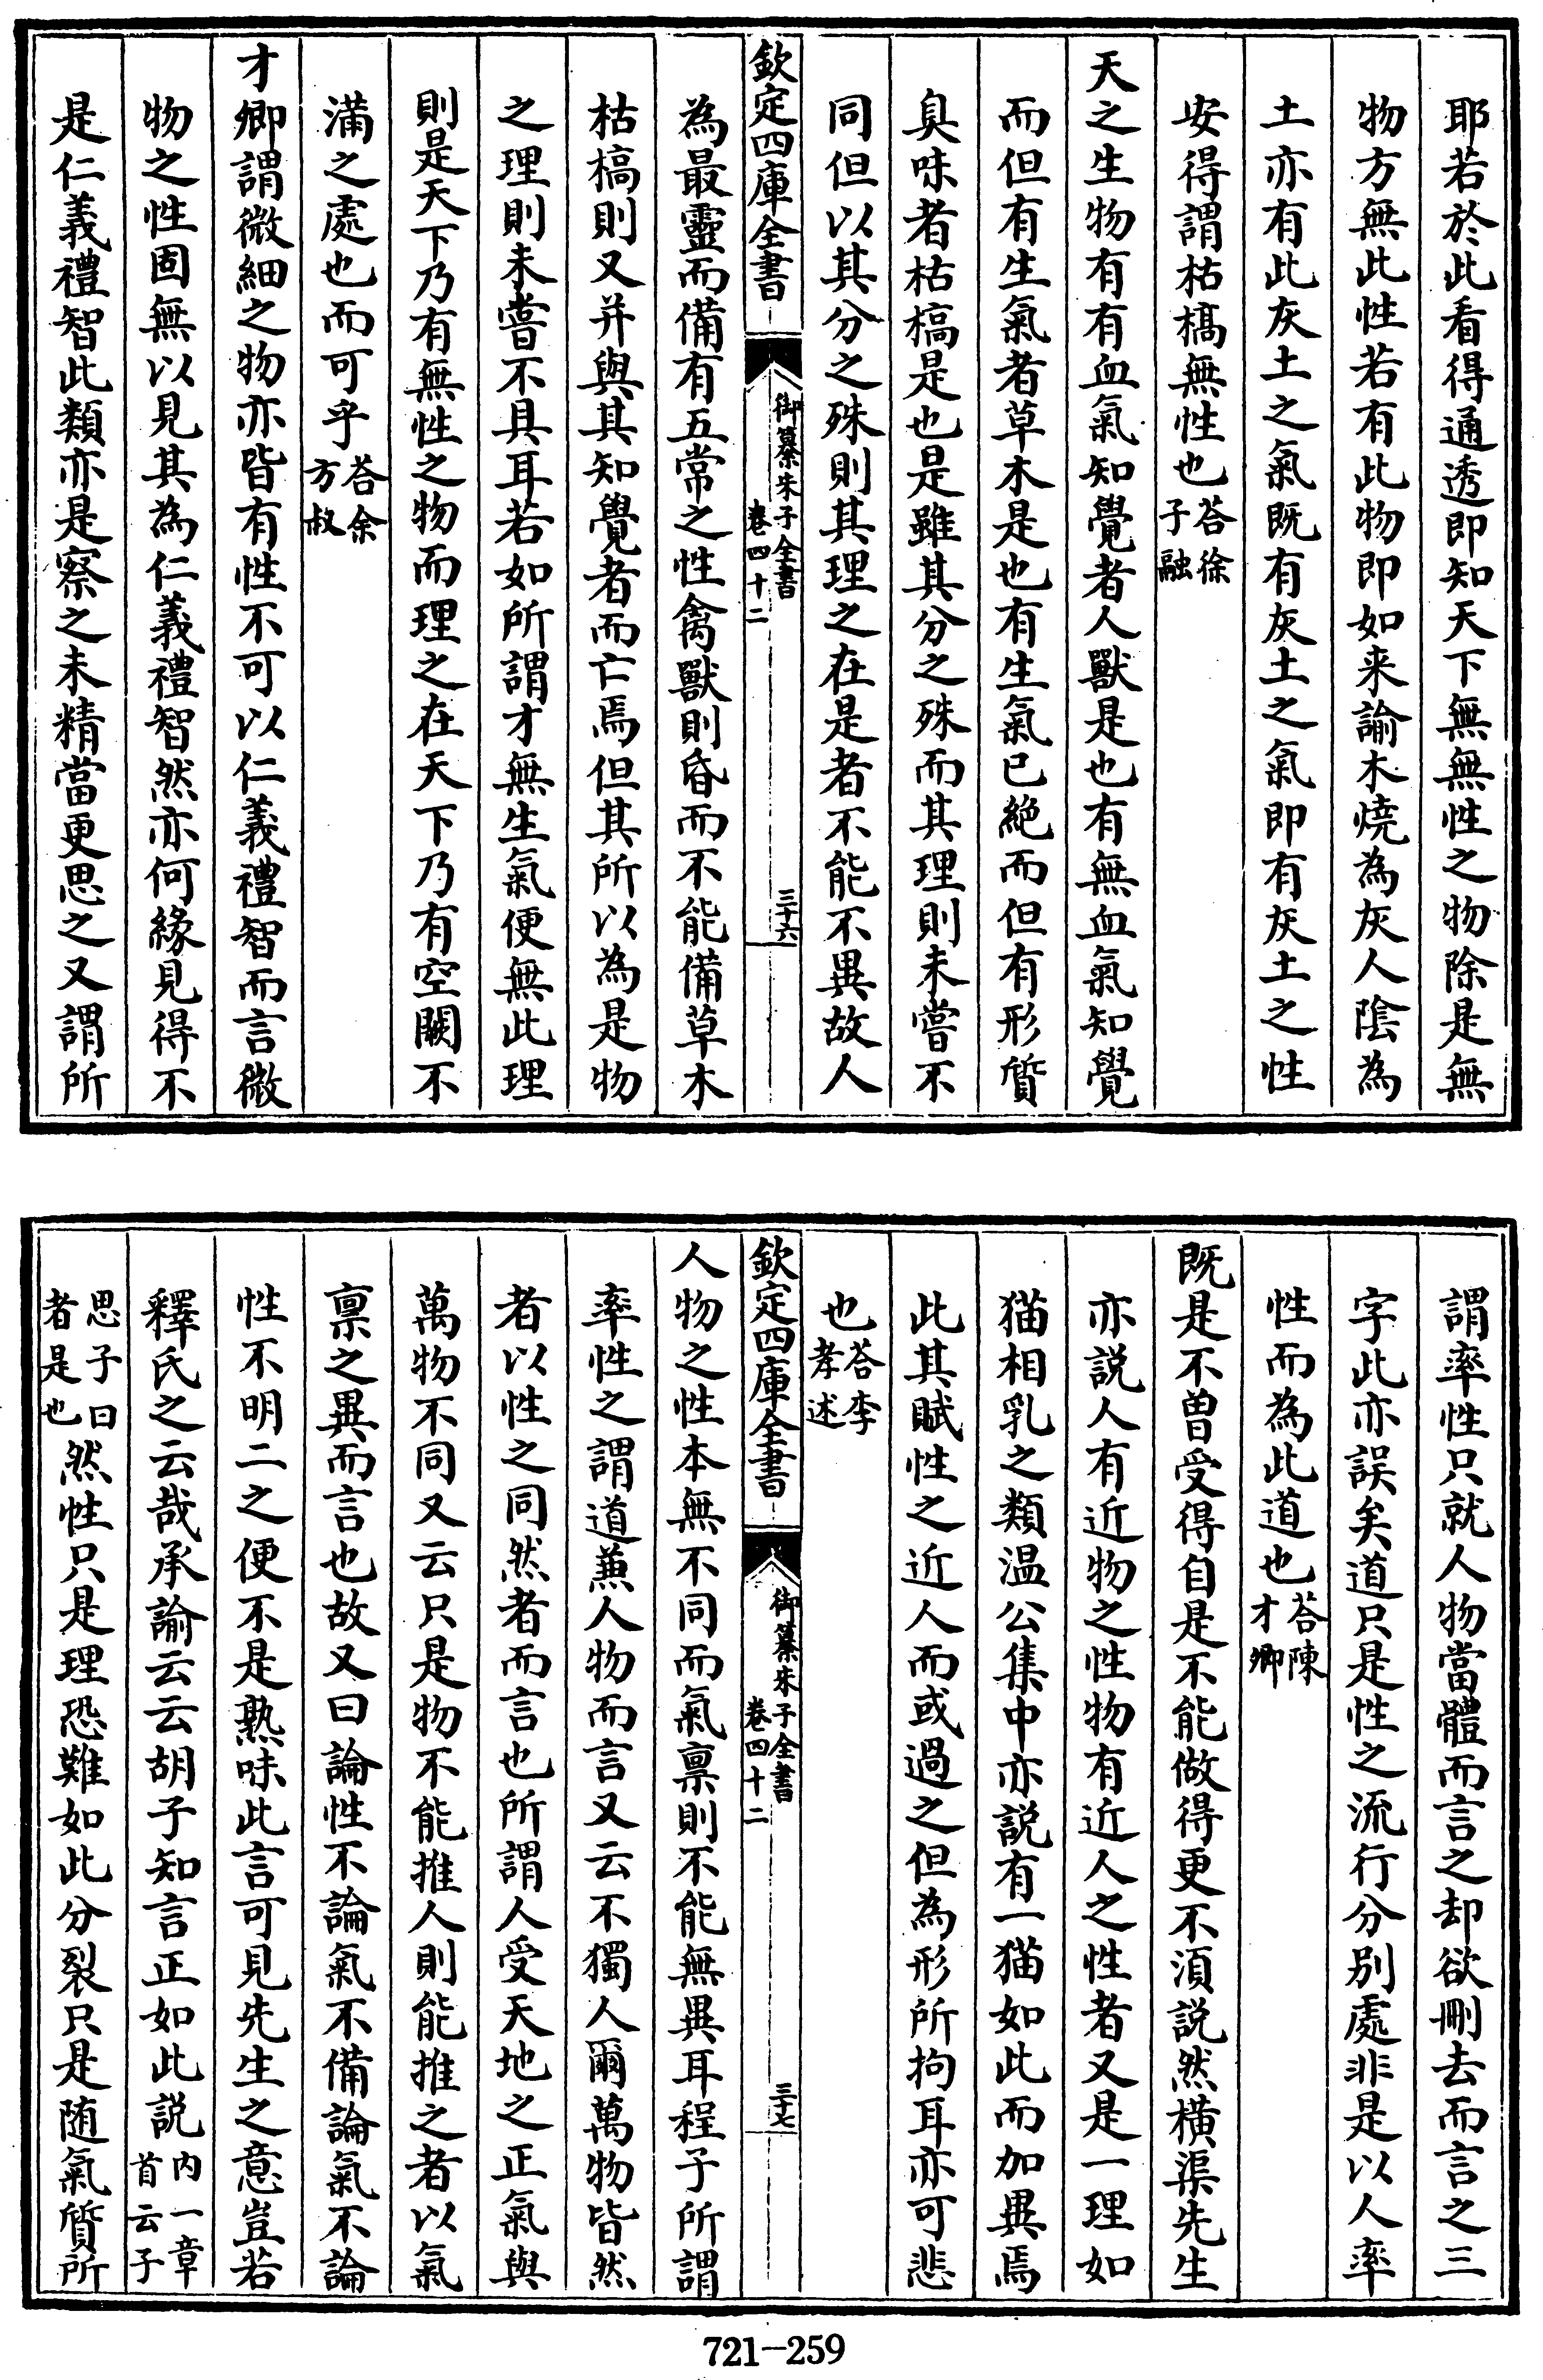 耶若於此看得通透即知天下無無性之物除是無
物方無此性若有此物即如来諭木燒為灰人陰為
土亦有此灰土之氣既有灰土之氣即有灰土之性
安得謂枯槁無性也答徐子融
天之生物有有血氣知覺者人獸是也有無血氣知覺
而但有生氣者草木是也有生氣已絶而但有形質
臭味者枯槁是也是雖其分之殊而其理則未嘗不
同但以其分之殊則其理之在是者不能不異故人
欽定四庫全書
御纂朱子全書
卷四十二
三十六
為最靈而備有五常之性禽獸則昏而不能備草木
枯槁則又并與其知覺者而亡焉但其所以為是物
之理則未嘗不具耳若如所謂才無生氣便無此理
則是天下乃有無性之物而理之在天下乃有空闕不
滿之處也而可乎答余方叔
才卿謂微細之物亦皆有性不可以仁義禮智而言微
物之性固無以見其為仁義禮智然亦何緣見得不
是仁義禮智此類亦是察之未精當更思之又謂所
謂率性只就人物當體而言之却欲刪去而言之三
字此亦誤矣道只是性之流行分别處非是以人率
性而為此道也答陳才卿
既是不曾受得自是不能做得更不湏説然横渠先生
亦説人有近物之性物有近人之性者又是一理如
猫相乳之類温公集中亦説有一猫如此而加異焉
此其賦性之近人而或過之但為形所拘耳亦可悲
也答李孝述
欽定四庫全書
御纂朱子全書
卷四十二
三十七
人物之性本無不同而氣禀則不能無異耳程子所謂
率性之謂道兼人物而言又云不獨人爾萬物皆然
者以性之同然者而言也所謂人受天地之正氣與
萬物不同又云只是物不能推人則能推之者以氣
禀之異而言也故又曰論性不論氣不備論氣不論
性不明二之便不是熟味此言可見先生之意豈若
釋氏之云哉承諭云云胡子知言正如此説内一章首云子
思子曰者是也然性只是理恐難如此分裂只是随氣質所
721-259